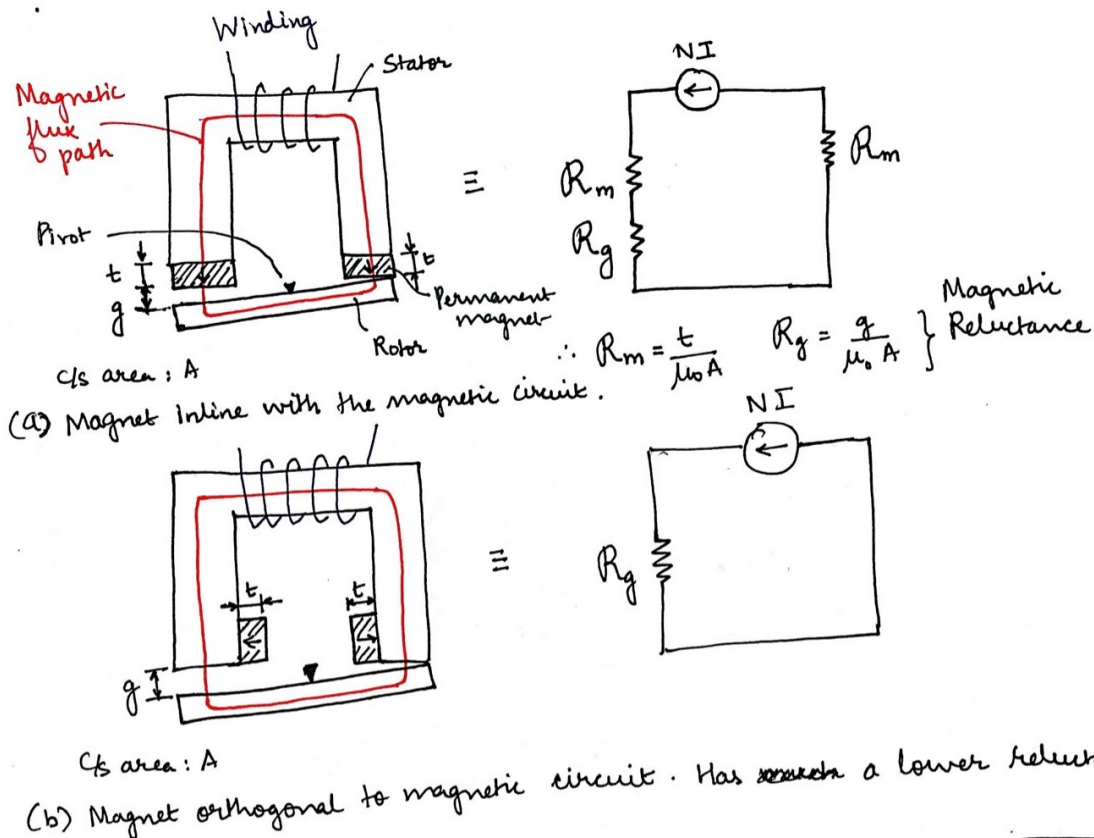 Winding
NI
Stator
Magnetic
flux
path
R_m
≡
R_m
Pivot
R_g
t
t
g
Permanent
magnet
Rotor
∴ R_m = t/μ₀A R_g = g/μ₀A } Magnetic Reluctance
C/s area: A
(a) Magnet inline with the magnetic circuit.
NI
≡
t
t
R_g
g
C/s area: A
(b) Magnet orthogonal to magnetic circuit. Has a lower reluct